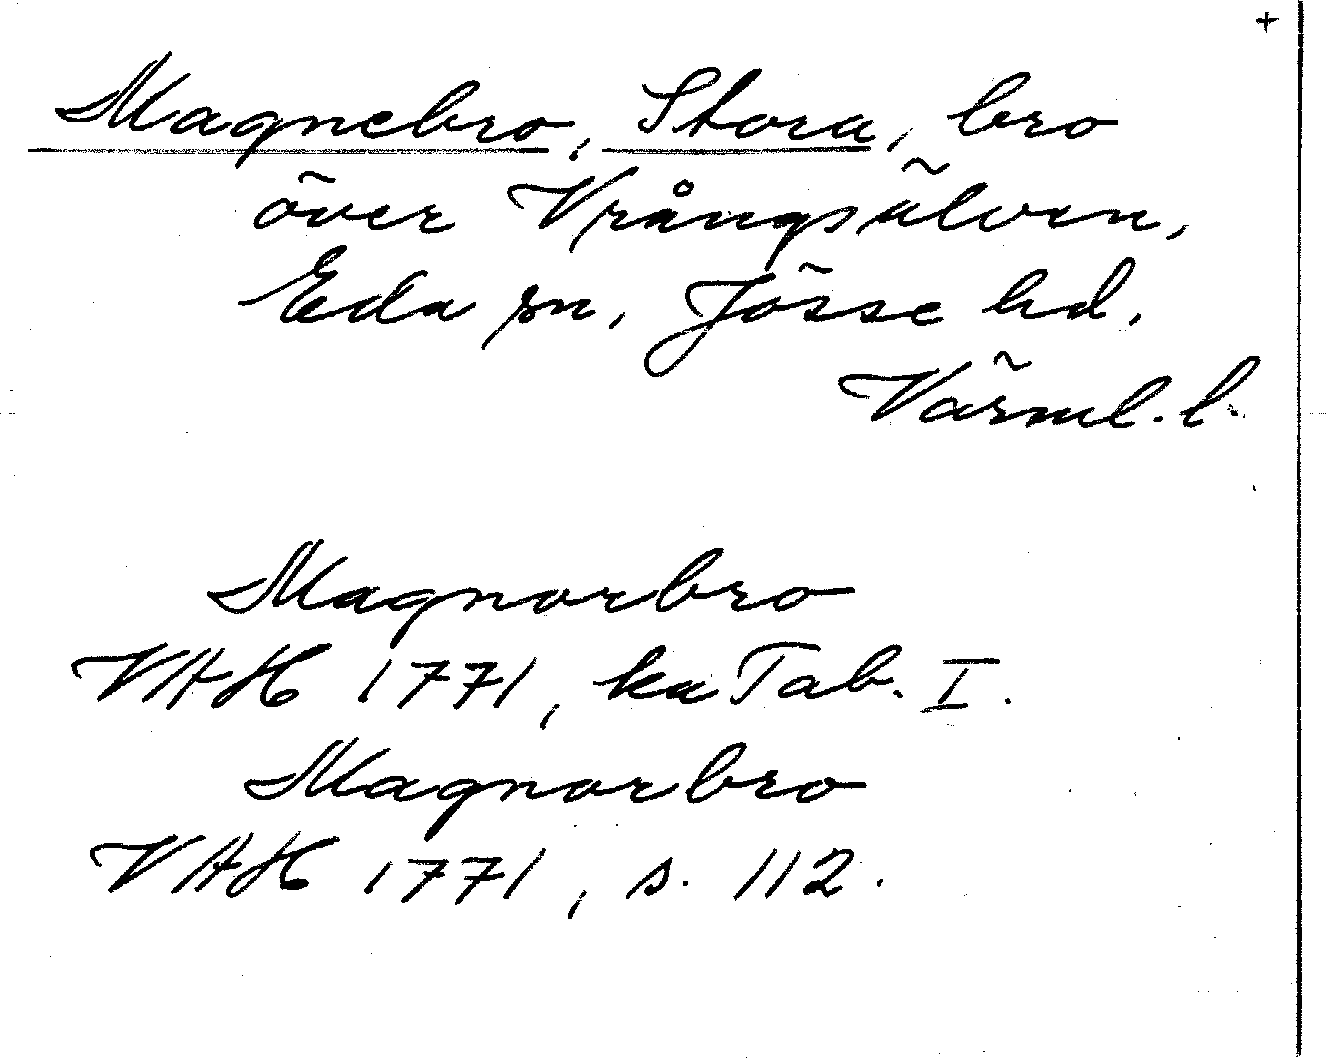 +
Magnebro, Stora, bro
över Vrångsälven,
Eda sn, Jösse hd,
Värml. l.
Magnorbro
VAH 1771, ka Tab. I.
Magnorbro
VAH 1771, s. 112.